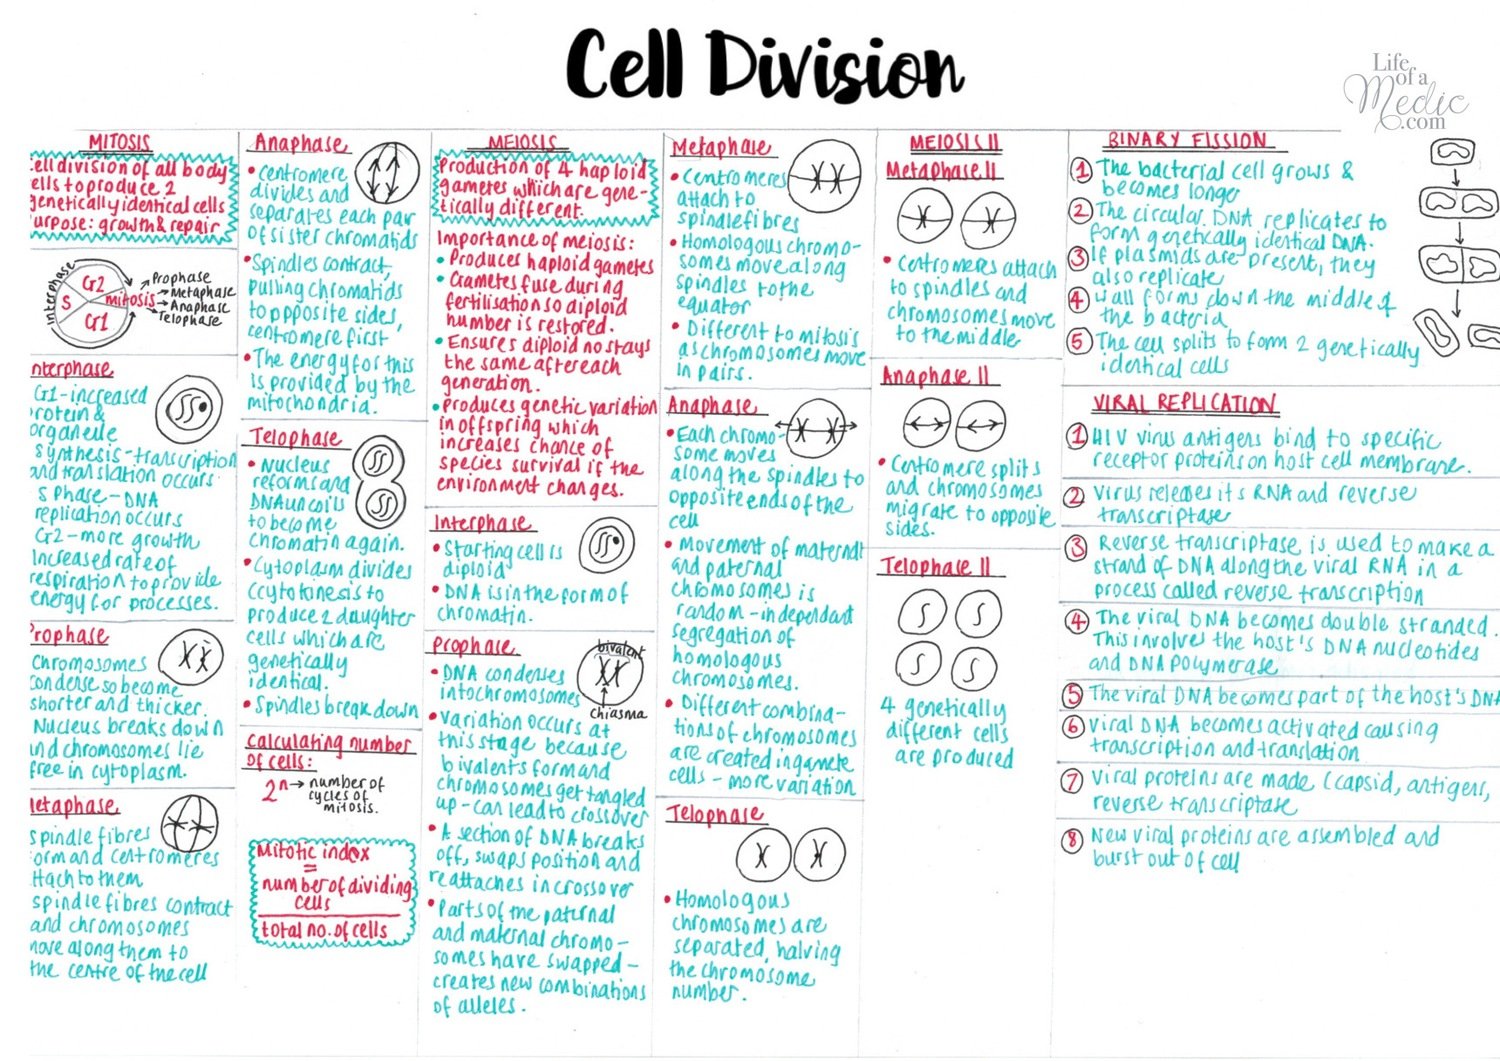 Cell Division
Life
of a
Medic
.com
MITOSIS
ell division of all body
ells to produce 2
genetically identical cells
urpose: growth & repair
Interphase
G2
S
G1
mitosis
Prophase
Metaphase
Anaphase
Telophase
nterphase
G1 - increased
rotein &
organelle
synthesis - transcription
and translation occurs
S phase - DNA
replication occurs
G2 - more growth
Increased rate of
respiration to provide
energy for processes.
rophase
Chromosomes
condense so become
shorter and thicker.
Nucleus breaks down
and chromosomes lie
free in cytoplasm.
Metaphase
spindle fibres
orm and centromeres
ttach to them
spindle fibres contract
and chromosomes
move along them to
the centre of the cell
Anaphase
• centromere
divides and
separates each pair
of sister chromatids
• Spindles contract,
pulling chromatids
to opposite sides,
centromere first
• The energy for this
is provided by the
mitochondria.
Telophase
• Nucleus
reforms and
DNA uncoils
to become
chromatin again.
• Cytoplasm divides
(cytokinesis to
produce 2 daughter
cells which are
genetically
identical.
• Spindles break down
Calculating number
of cells:
2ⁿ → number of
cycles of
mitosis.
Mitotic index
=
number of dividing
cells
total no. of cells
MEIOSIS
Production of 4 haploid
gametes which are gene-
tically different.
Importance of meiosis:
• Produces haploid gametes
• Gametes fuse during
fertilisation so diploid
number is restored.
• Ensures diploid no stays
the same after each
generation.
• produces genetic variation
in offspring which
increases chance of
species survival if the
environment changes.
Interphase
• Starting cell is
diploid
• DNA is in the form of
chromatin.
Prophase
bivalent
chiasma
• DNA condenses
into chromosomes
• Variation occurs at
this stage because
bivalents form and
chromosomes get tangled
up - can lead to crossover
• A section of DNA breaks
off, swaps position and
reattaches in crossover
• Parts of the paternal
and maternal chromo-
somes have swapped -
creates new combinations
of alleles.
Metaphase
• Centromeres
attach to
spindle fibres
• Homologous chromo-
somes move along
spindles to the
equator
• Different to mitosis
as chromosomes move
in pairs.
Anaphase
• Each chromo-
some moves
along the spindles to
opposite ends of the
cell
• Movement of maternal
and paternal
chromosomes is
random - independant
segregation of
homologous
chromosomes.
• Different combina-
tions of chromosomes
are created in gamete
cells - more variation
Telophase
• Homologous
chromosomes are
separated, halving
the chromosome
number.
MEIOSIS II
Metaphase II
• Centromeres attach
to spindles and
chromosomes move
to the middle
Anaphase II
• Centromere splits
and chromosomes
migrate to opposite
sides.
Telophase II
4 genetically
different cells
are produced
BINARY FISSION
1 The bacterial cell grows &
becomes longer
2 The circular DNA replicates to
form genetically identical DNA.
3 If plasmids are present, they
also replicate
4 Wall forms down the middle of
the bacteria
5 The cell splits to form 2 genetically
identical cells
VIRAL REPLICATION
1 HIV virus antigens bind to specific
receptor proteins on host cell membrane.
2 Virus releases its RNA and reverse
transcriptase
3 Reverse transcriptase is used to make a
strand of DNA along the viral RNA in a
process called reverse transcription
4 The viral DNA becomes double stranded.
This involves the host's DNA nucleotides
and DNA polymerase
5 The viral DNA becomes part of the host's DNA
6 Viral DNA becomes activated causing
transcription and translation
7 Viral proteins are made (capsid, antigens,
reverse transcriptase
8 New viral proteins are assembled and
burst out of cell